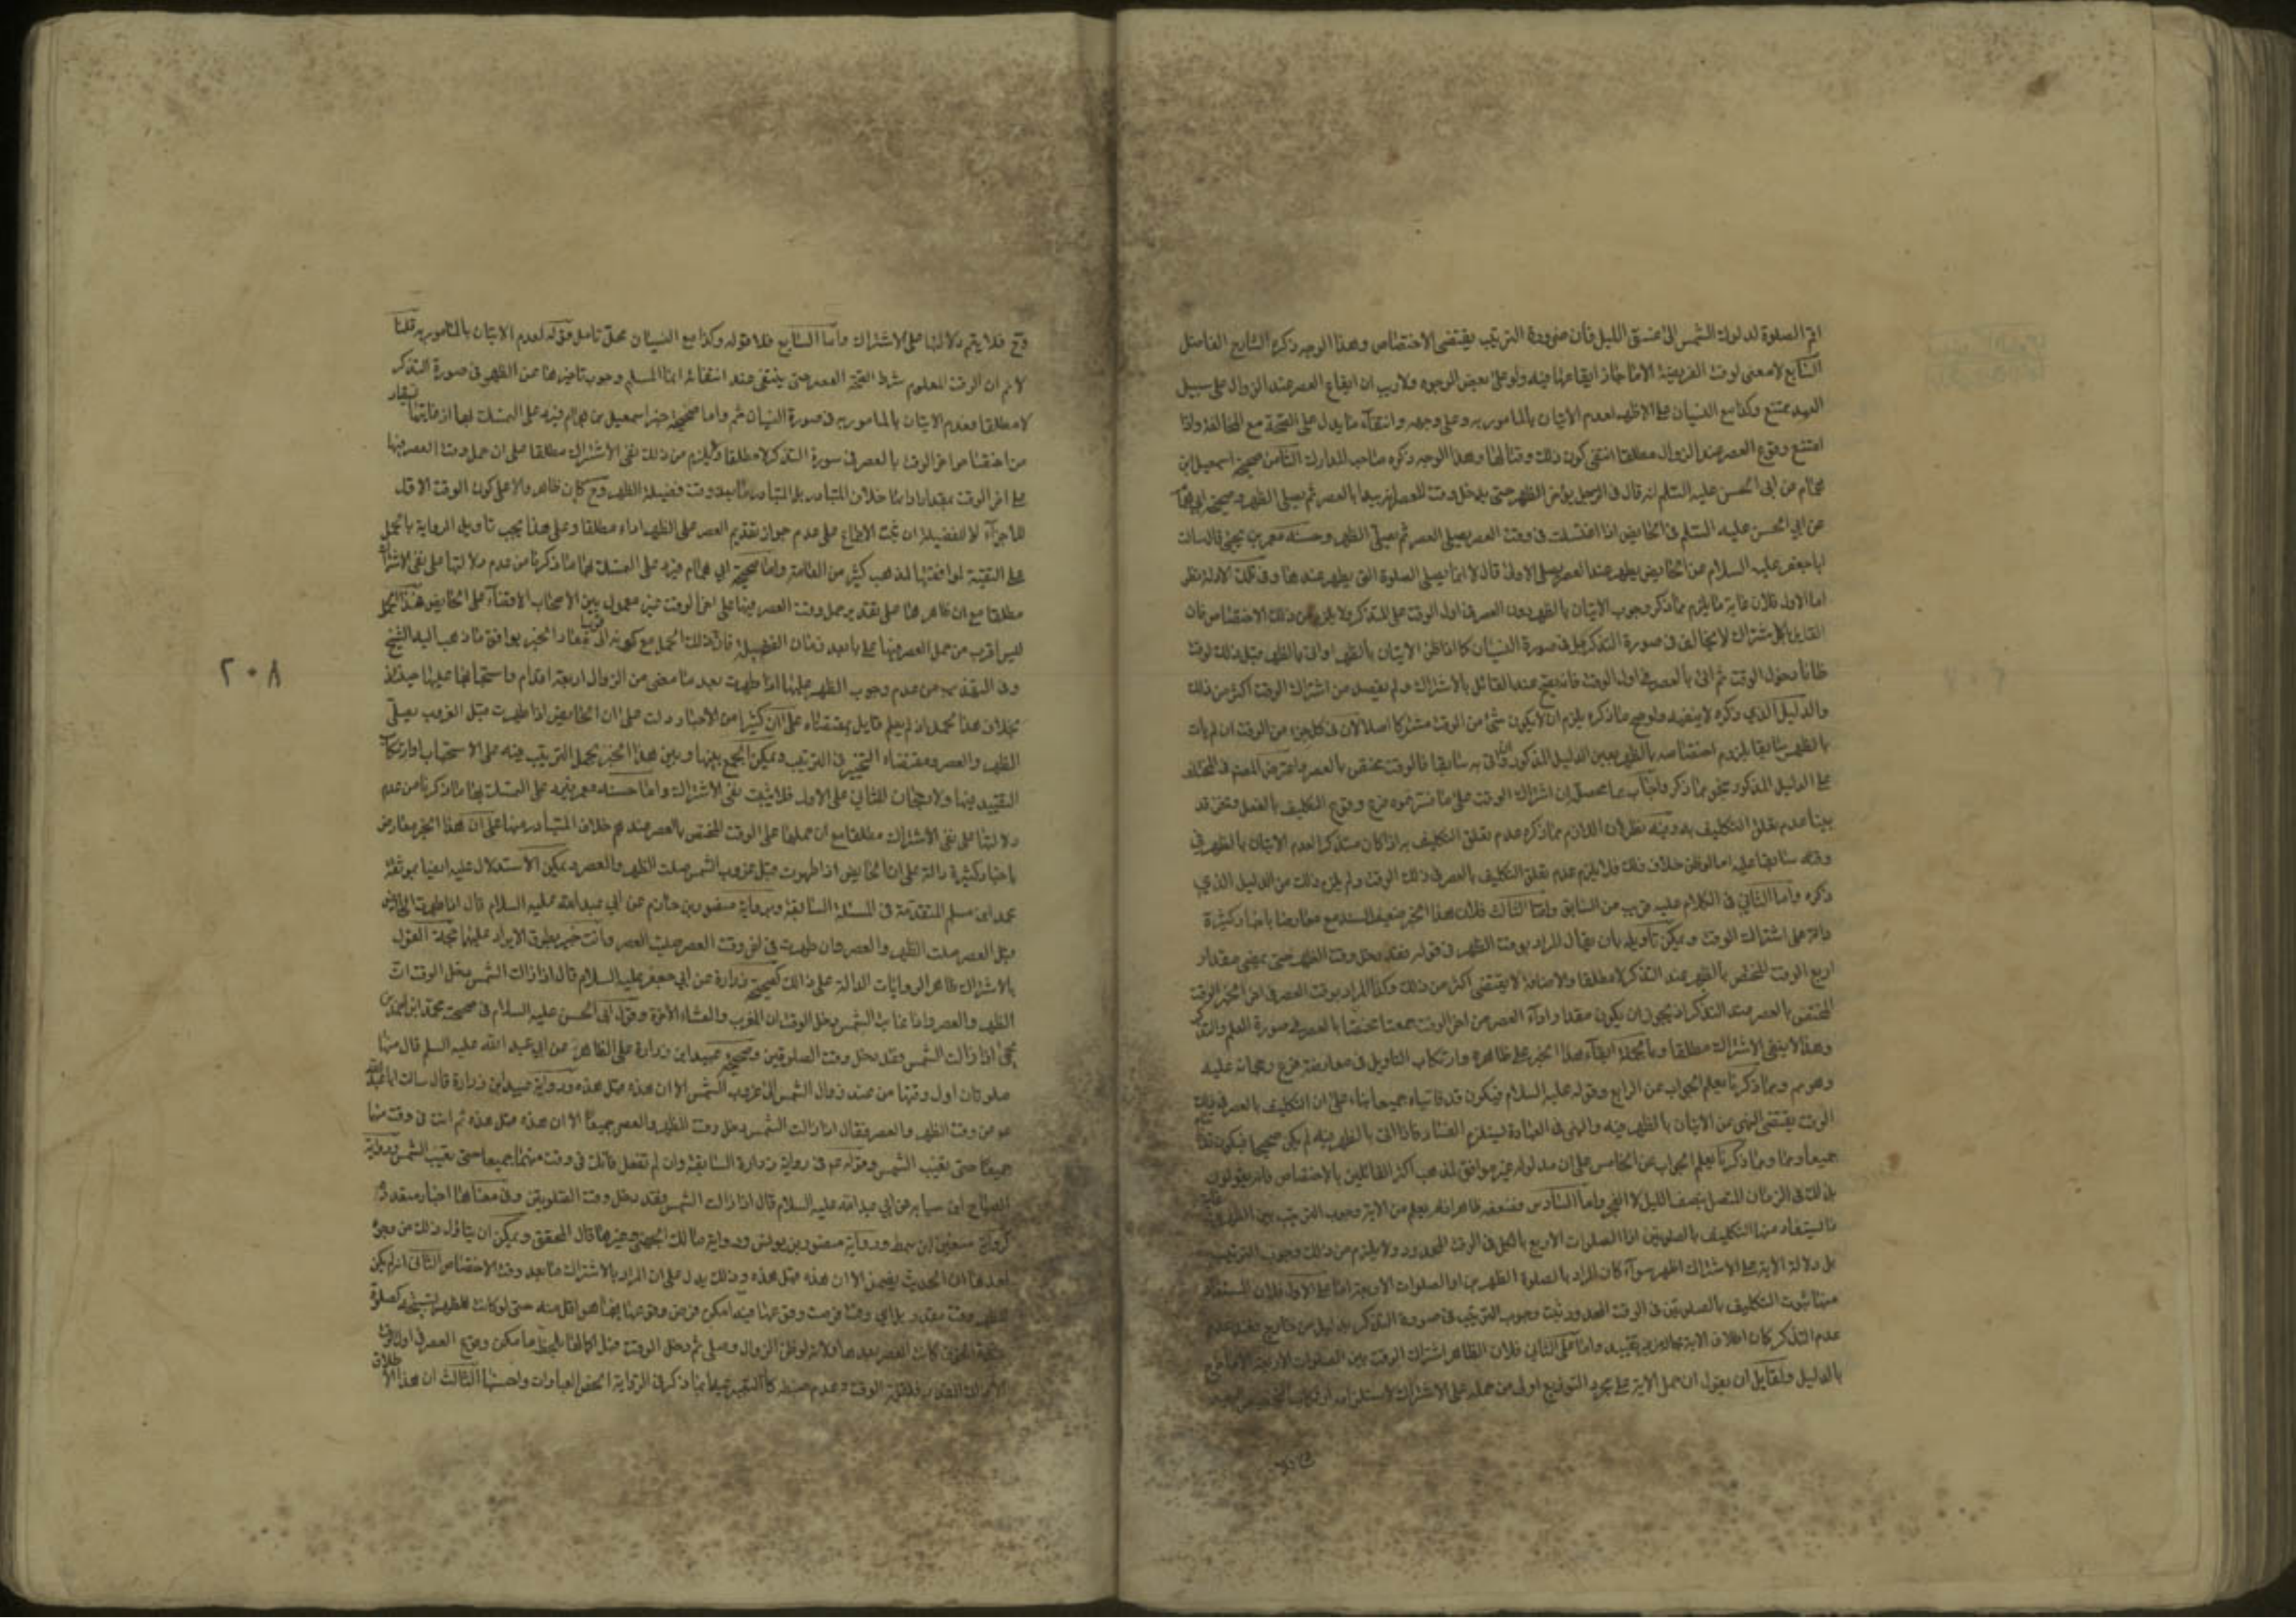 اقم الصلوة لدلوك الشمس الى غسق الليل فان ضرورة الترتيب يقتضى الاختصاص وهذا الوجه ذكره الشارح الفاضل
السابع لا معنى لوقت الفريضة الا ما جاز ايقاعها فيه ولو على بعض الوجوه ولا ريب ان ايقاع العصر عند الزوال على سبيل
العمد ممتنع وكذا مع النسيان على الاظهر لعدم الاتيان بالمامور به وعلى وجهه وانتفاء ما يدل على الصحة مع المخالفة واذا
امتنع وقوع العصر عند الزوال مطلقا انتفى كون ذلك وقتا لها وهذا الوجه ذكره صاحب المدارك الثامن صحيحة اسمعيل ابن
همام عن ابى الحسن عليه السلم انه قال فى الرجل يؤخر الظهر حتى يدخل وقت العصر انه يبدا بالعصر ثم يصلى الظهر وصحيحة ابى همام
عن ابى الحسن عليه السلم فى الحايض اذا اغتسلت فى وقت العصر يصلى العصر ثم يصلى الظهر وحسنة معمر بن يحيى قال سالت
ابا جعفر عليه السلام عن الحايض يطهر عند العصر يصلى الاولى قال لا انما يصلى الصلوة التى يطهر عندها وفى تلك الادلة نظر
اما الاول فلان غاية ما يلزم مما ذكر وجوب الاتيان بالظهر دون العصر فى اول الوقت على المتذكر ولا يلزم من ذلك الاختصاص فان
القايل بالاشتراك لا يخالف فى صورة التذكر بل فى صورة النسيان كما اذا ظن الاتيان بالظهر او اتى بالظهر قبل ذلك لوقت
ظانا دخول الوقت ثم اتى بالعصر فى اول الوقت فانه يصح عند القائل بالاشتراك ولم يقصد من اشتراك الوقت اكثر من ذلك
والدليل الذي ذكره لا ينفيه ولو صح ما ذكره يلزم ان لا يكون شئ من الوقت مشتركا اصلا لان فى كل جزء من الوقت ان لم يات
بالظهر سابقا يلزم اختصاصه بالظهر بعين الدليل المذكور وان اتى به سابقا فالوقت مختص بالعصر واعترض المصنف فى المختلف
على الدليل المذكور بنحو مما ذكر واجاب بما محصله ان اشتراك الوقت على ما فسرتموه فرع وقوع التكليف بالفعل ونحن قد
بينا عدم تعلق التكليف به وفيه نظر لان اللازم مما ذكره عدم تعلق التكليف به اذا كان متذكرا لعدم الاتيان بالظهر فى
وقته سابقا عليه اما لو ظن خلاف ذلك فلا يلزم عدم تعلق التكليف بالعصر فى ذلك الوقت ولم يلزم ذلك من الدليل الذي
ذكره واما الثاني فى الكلام عليه قريب من السابق واما الثالث فلان هذا الخبر ضعيف السند مع معارضا باخبار كثيرة
دالة على اشتراك الوقت ويمكن تاويله بان يقال المراد بوقت الظهر فى قوله فقد دخل وقت الظهر حتى يمضى مقدار
اربع الوقت المختص بالظهر عند التذكر لا مطلقا والاضافة لا يقتضى اكثر من ذلك وكذا المراد بوقت العصر فى اخر الخبر الوقت
المختص بالعصر عند التذكر اذ يجوز ان يكون مقدار اداء العصر من اخر الوقت جمعتا مختصا بالعصر فى صورة العلم والتذكر
وهذا لا ينفى الاشتراك مطلقا وبالجملة ابقاء هذا الخبر على ظاهره وارتكاب التاويل فى معارضه فرع رجحانه عليه
وهو مم ومما ذكرنا يعلم الجواب عن الرابع وقوله عليه السلام فيكون قد فاتتاه جميعا بناء على ان التكليف بالعصر فى ذلك
الوقت يقتضى النهى عن الاتيان بالظهر فيه والنهى فى العبادة ليستلزم الفساد فاذا اتى بالظهر فيه لم يكن صحيحا فيكون قد فاتتا
جميعا ومما ذكرنا يعلم الجواب عن الخامس على ان مدلوله غير موافق لمذهب اكثر القائلين بالاختصاص فانهم يقولون
بذلك فى الزمان المتصل بنصف الليل لا الفجر واما السادس فضعفه ظاهر اذ لم يعلم من الاية وجوب الترتيب بين الظهرين غاية
ما يستفاد منها التكليف بالصلوتين اما الصلوات الاربع بالكل فى الوقت المحدود ولا يلزم من ذلك وجوب الترتيب
بل دلالة الاية على الاشتراك اظهر سواء كان المراد بالصلوة الظهرين او الصلوات الاربعة اما على الاول فلان المستفاد
منها ثبوت التكليف بالصلوتين فى الوقت المحدود ثبت وجوب الترتيب فى صورة التذكر بدليل من خارج فعند عدم
عدم التذكر كان اطلاق الاية بحاله من غير تقييد واما على الثاني فلان الظاهر اشتراك الوقت بين الصلوات الاربعة الا ما خرج
بالدليل ولقايل ان يقول ان حمل الاية على مجرد التوزيع اولى من حمله على الاشتراك لاستلزامه
فح فلا يتم دلالتها على الاشتراك واما السابع فلا قوله وكذا مع النسيان محل تامل قوله لعدم الاتيان بالمامور به قلنا
لا نم ان الوقت المعلوم شرط الصحة العصر حتى ينتفى عند انتفائه انما المسلم وجوب تاخيرها عن الظهر فى صورة التذكر
لا مطلقا فعدم الاتيان بالمامور به فى صورة النسيان ثم واما صحيحة خبر اسمعيل بن همام فيرد على التمسك بها ان غايتها
من اختصاص اخر الوقت بالعصر فى سورة التذكر لا مطلقا ولا يلزم من ذلك نفى الاشتراك مطلقا على ان حمل وقت العصر فيها
على اخر الوقت بمقدار ادائها خلاف المتبادر بل المتبادر ما بعد وقت فضيلة الظهر وح كان ظاهره دالا على كون الوقت الاول
للاجزاء لا للفضيلة ان ثبت الاجماع على عدم جواز تقديم العصر على الظهر اداء مطلقا وعلى هذا يجب تاويل الرواية بالحمل
على التقية لموافقتها لمذهب كثير من العامة واما صحيحة ابى همام فيرد على التمسك بها ما ذكرنا من عدم دلالتها على نفى الاشتراك
مطلقا مع ان ظاهرها على تقدير حمل وقت العصر فيها على اخر الوقت غير معمول بين الاصحاب الافتاء على الحايض هذا الحمل
ليس اقرب من حمل العصر فيها على بابعد زمان الفضيلة فان ذلك الحمل مع كونه اقرب الى مفاد الخبر يوافق ما ذهب اليه الشيخ
وفى التهذيب من عدم وجوب الظهر عليها اذا طهرت بعد ما مضى من الزوال اربعة اقدام واستحبابها عليها حينئذ
بخلاف هذا الحمل اذ لم يعلم قايل بمقتضاه على ان كثيرا من الاخبار دلت على ان الحايض اذا طهرت قبل الغروب يصلى
الظهر والعصر ومقتضاه التخيير فى الترتيب ويمكن الجمع بينها وبين هذا الخبر بحمل الترتيب فيه على الاستحباب او ارتكاب
التقييد فيها ولا رجحان للثاني على الاول فلا يثبت نفى الاشتراك واما حسنة معمر فيرد على التمسك بها ما ذكرنا من عدم
دلالتها على نفى الاشتراك مطلقا مع ان حملها على الوقت المختص بالعصر عندهم خلاف المتبادر منها على ان هذا الخبر معارض
باخبار كثيرة دالة على ان الحايض اذا طهرت قبل غروب الشمس صلت الظهر والعصر ويمكن الاستدلال عليه ايضا بموثقة
محمد ابن مسلم المتقدمة فى المسئلة السابقة وبرواية منصور بن حازم عن ابي عبد الله عليه السلام قال اذا طهرت الحايض
قبل العصر صلت الظهر والعصر وان طهرت فى اخر وقت العصر صلت العصر وانت خبير بطرق الايراد عليها حجة القول
بالاشتراك ظاهر الروايات الدالة على ذلك كصحيحة زرارة عن ابي جعفر عليه السلام قال اذا زالت الشمس دخل الوقتان
الظهر والعصر واذا غابت الشمس دخل الوقتان المغرب والعشاء الاخرة وقول ابى الحسن عليه السلام فى صحيحة محمد ابن احمد بن
يحيى اذا زالت الشمس فقد دخل وقت الصلوتين وصحيحة عبيد ابن زرارة على الظاهر عن ابي عبد الله عليه السلم قال منها
صلوتان اول وقتها من عند زوال الشمس الى غروب الشمس الا ان هذه قبل هذه ورواية عبيد ابن زرارة قال سالت ابا عبد الله
عم عن وقت الظهر والعصر فقال اذا زالت الشمس دخل وقت الظهر والعصر جميعا الا ان هذه قبل هذه ثم انت فى وقت منهما
جميعا حتى تغيب الشمس وقوله عم فى رواية زرارة السابقة وان لم تفعل فانك فى وقت منهما جميعا حتى يغيب الشمس ورواية
الصباح ابن سيابه عن ابي عبد الله عليه السلام قال اذا زالت الشمس فقد دخل وقت الصلوتين وفى معناها اخبار متعددة
كرواية سفين ابن سمط ورواية منصور بن يونس ورواية مالك الجهنى وغيرها قال المحقق ويمكن ان يتاول ذلك من وجوه
احدها ان الحديث يضمن الا ان هذه قبل هذه وذلك يدل على ان المراد بالاشتراك ما بعد وقت الاختصاص الثاني انه لم يكن
للظهر وقت مقدر بل اي وقت فرضت وقوعها فيه امكن فرض وقوعها فيما هو اقل منه حتى لو كانت الظهر تسبيحة كصلوة
شدة الخوف كانت العصر بعدها ولانه لو ظن الزوال وصلى ثم دخل الوقت قبل اكمالها بلحظة امكن وقوع العصر فى اول الوقت
الا ذلك القدر فلقلة الوقت وعدم ضبطه كان التعبير عنه بما ذكر فى الرواية الخص العبارات واحسنها الثالث ان هذا الاطلاق
٢٠٨